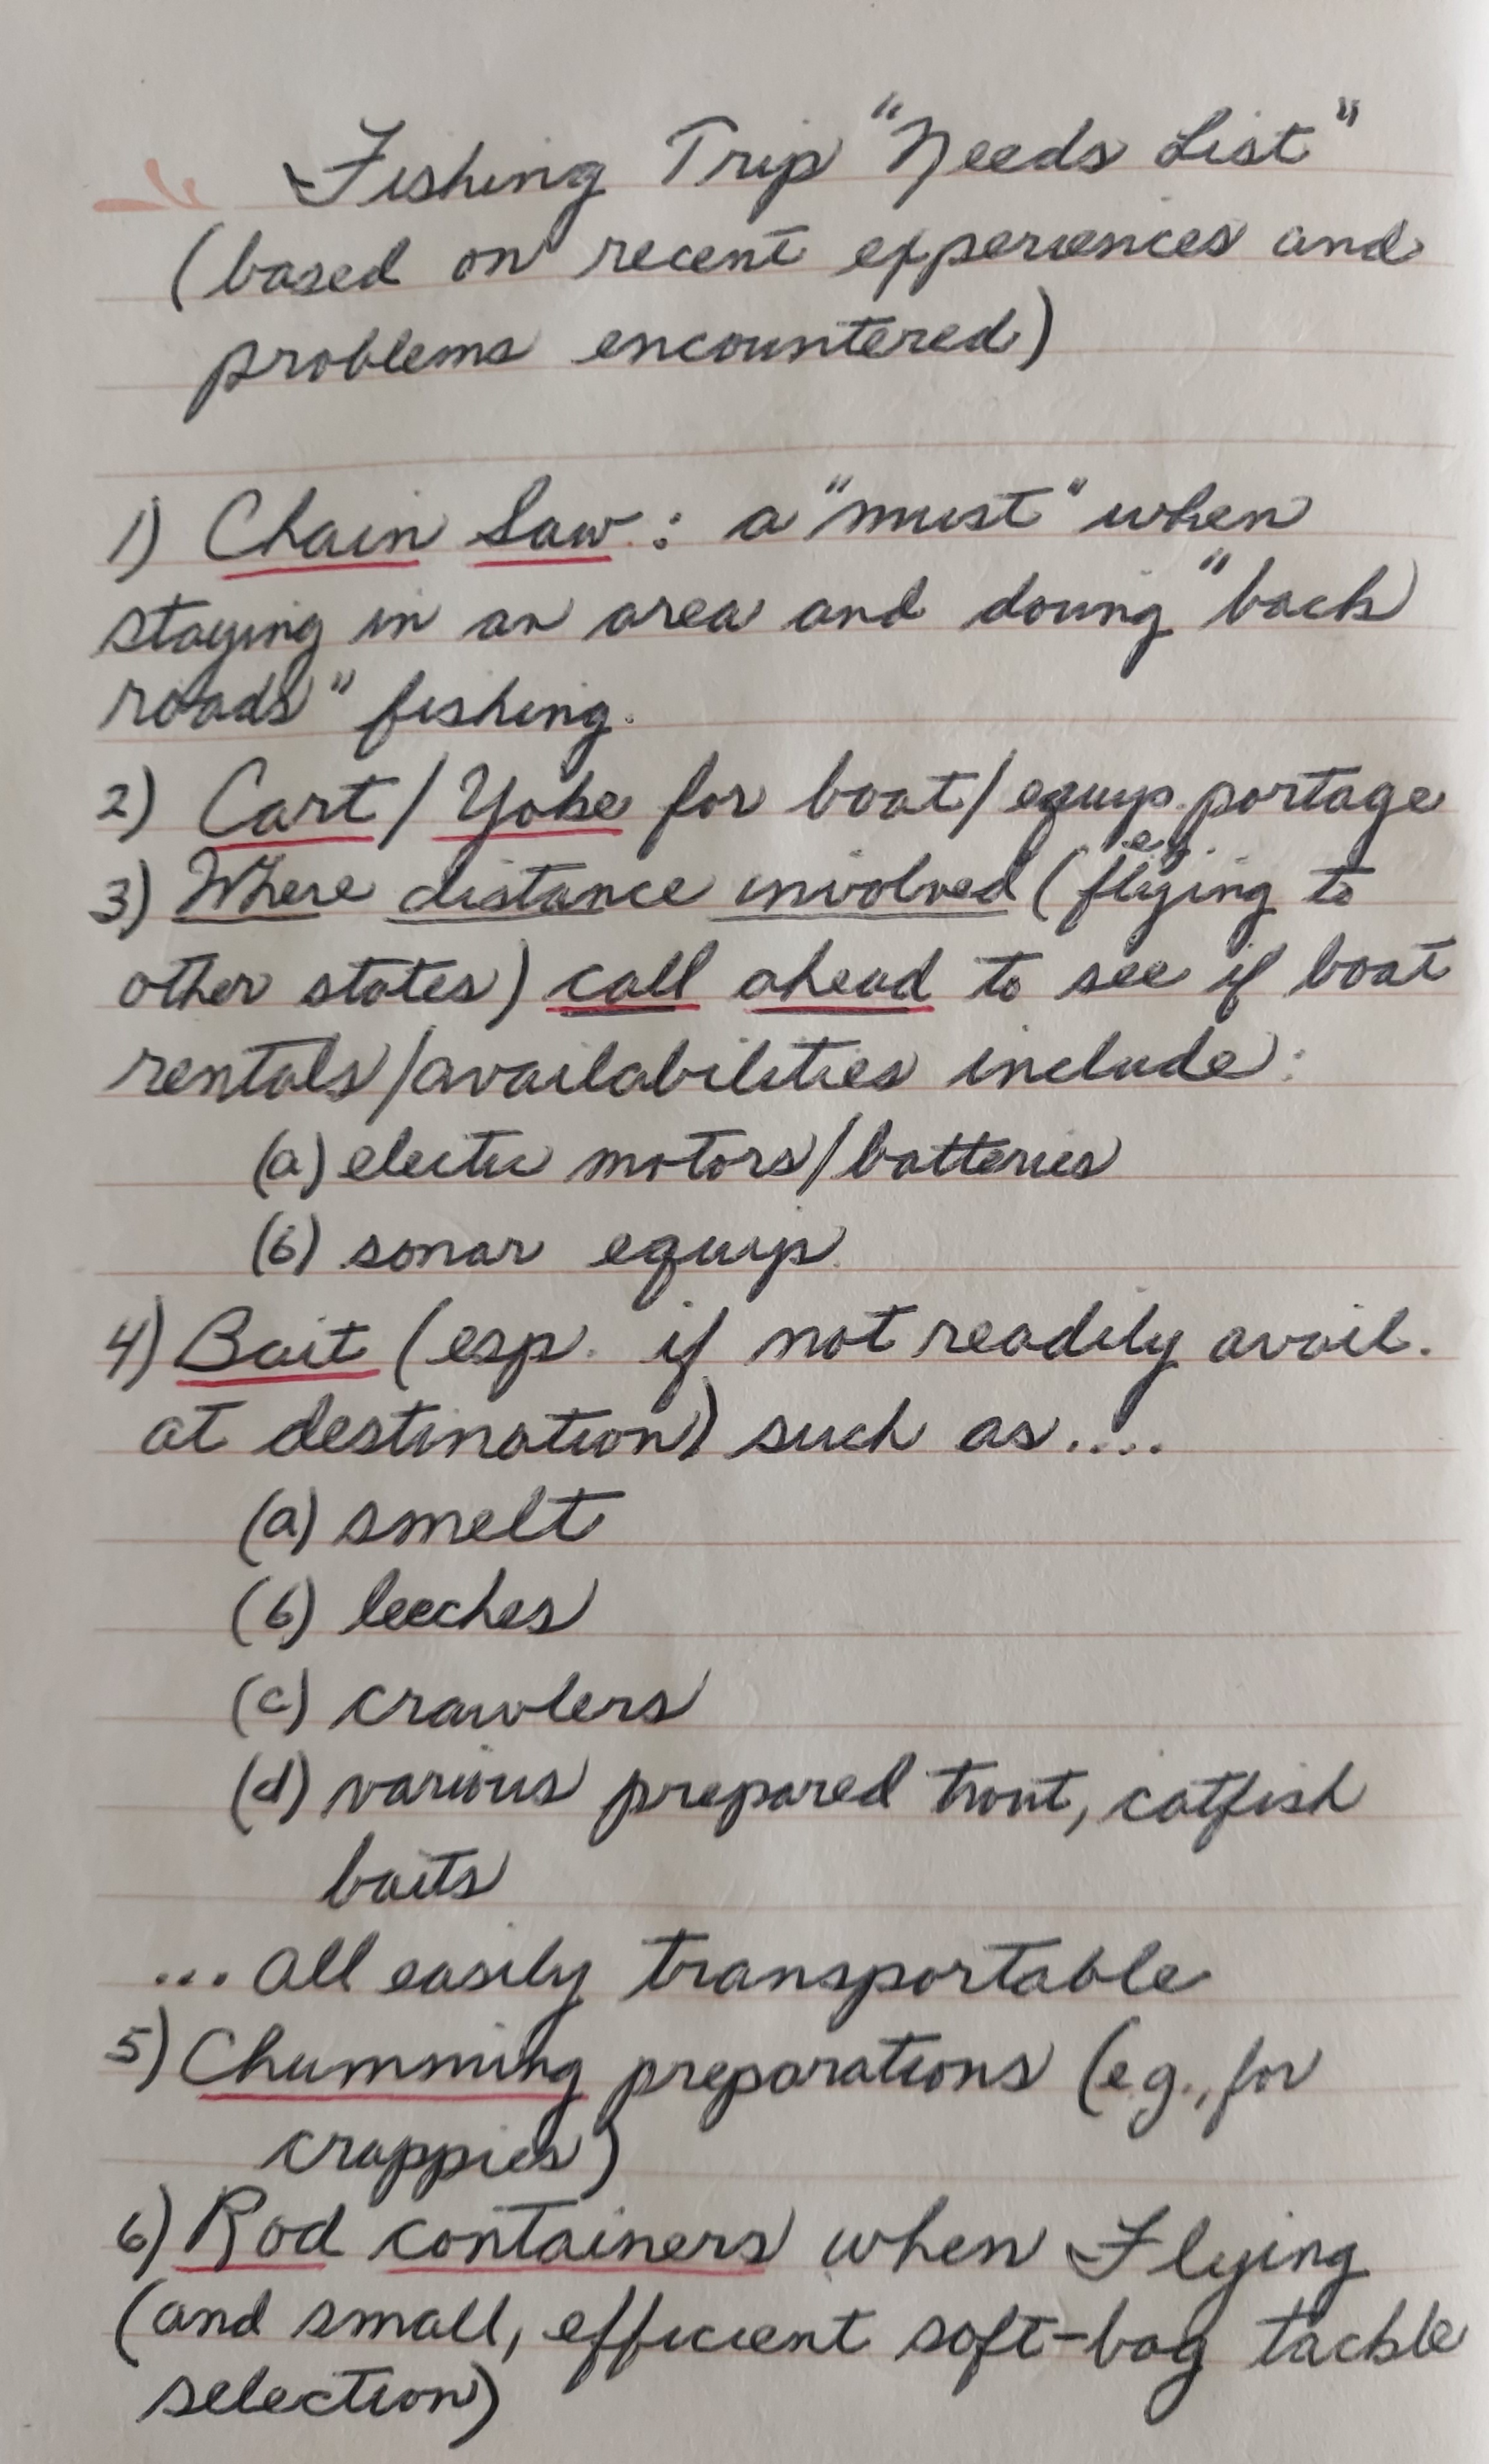 Fishing Trip "Needs List"
(based on recent experiences and
problems encountered)
1) Chain Saw: a "must" when
staying in an area and doing "back
roads" fishing.
2) Cart/Yoke for boat/equip. portage
3) Where distance involved (e.g. flying to
other states) call ahead to see if boat
rentals/availabilities include:
(a) electric motors/batteries
(b) sonar equip.
4) Bait (esp. if not readily avail.
at destination) such as....
(a) smelt
(b) leeches
(c) crawlers
(d) various prepared trout, catfish
baits
... all easily transportable
5) Chumming preparations (e.g., for
crappies)
6) Rod containers when Flying
(and small, efficient soft-bag tackle
selection)